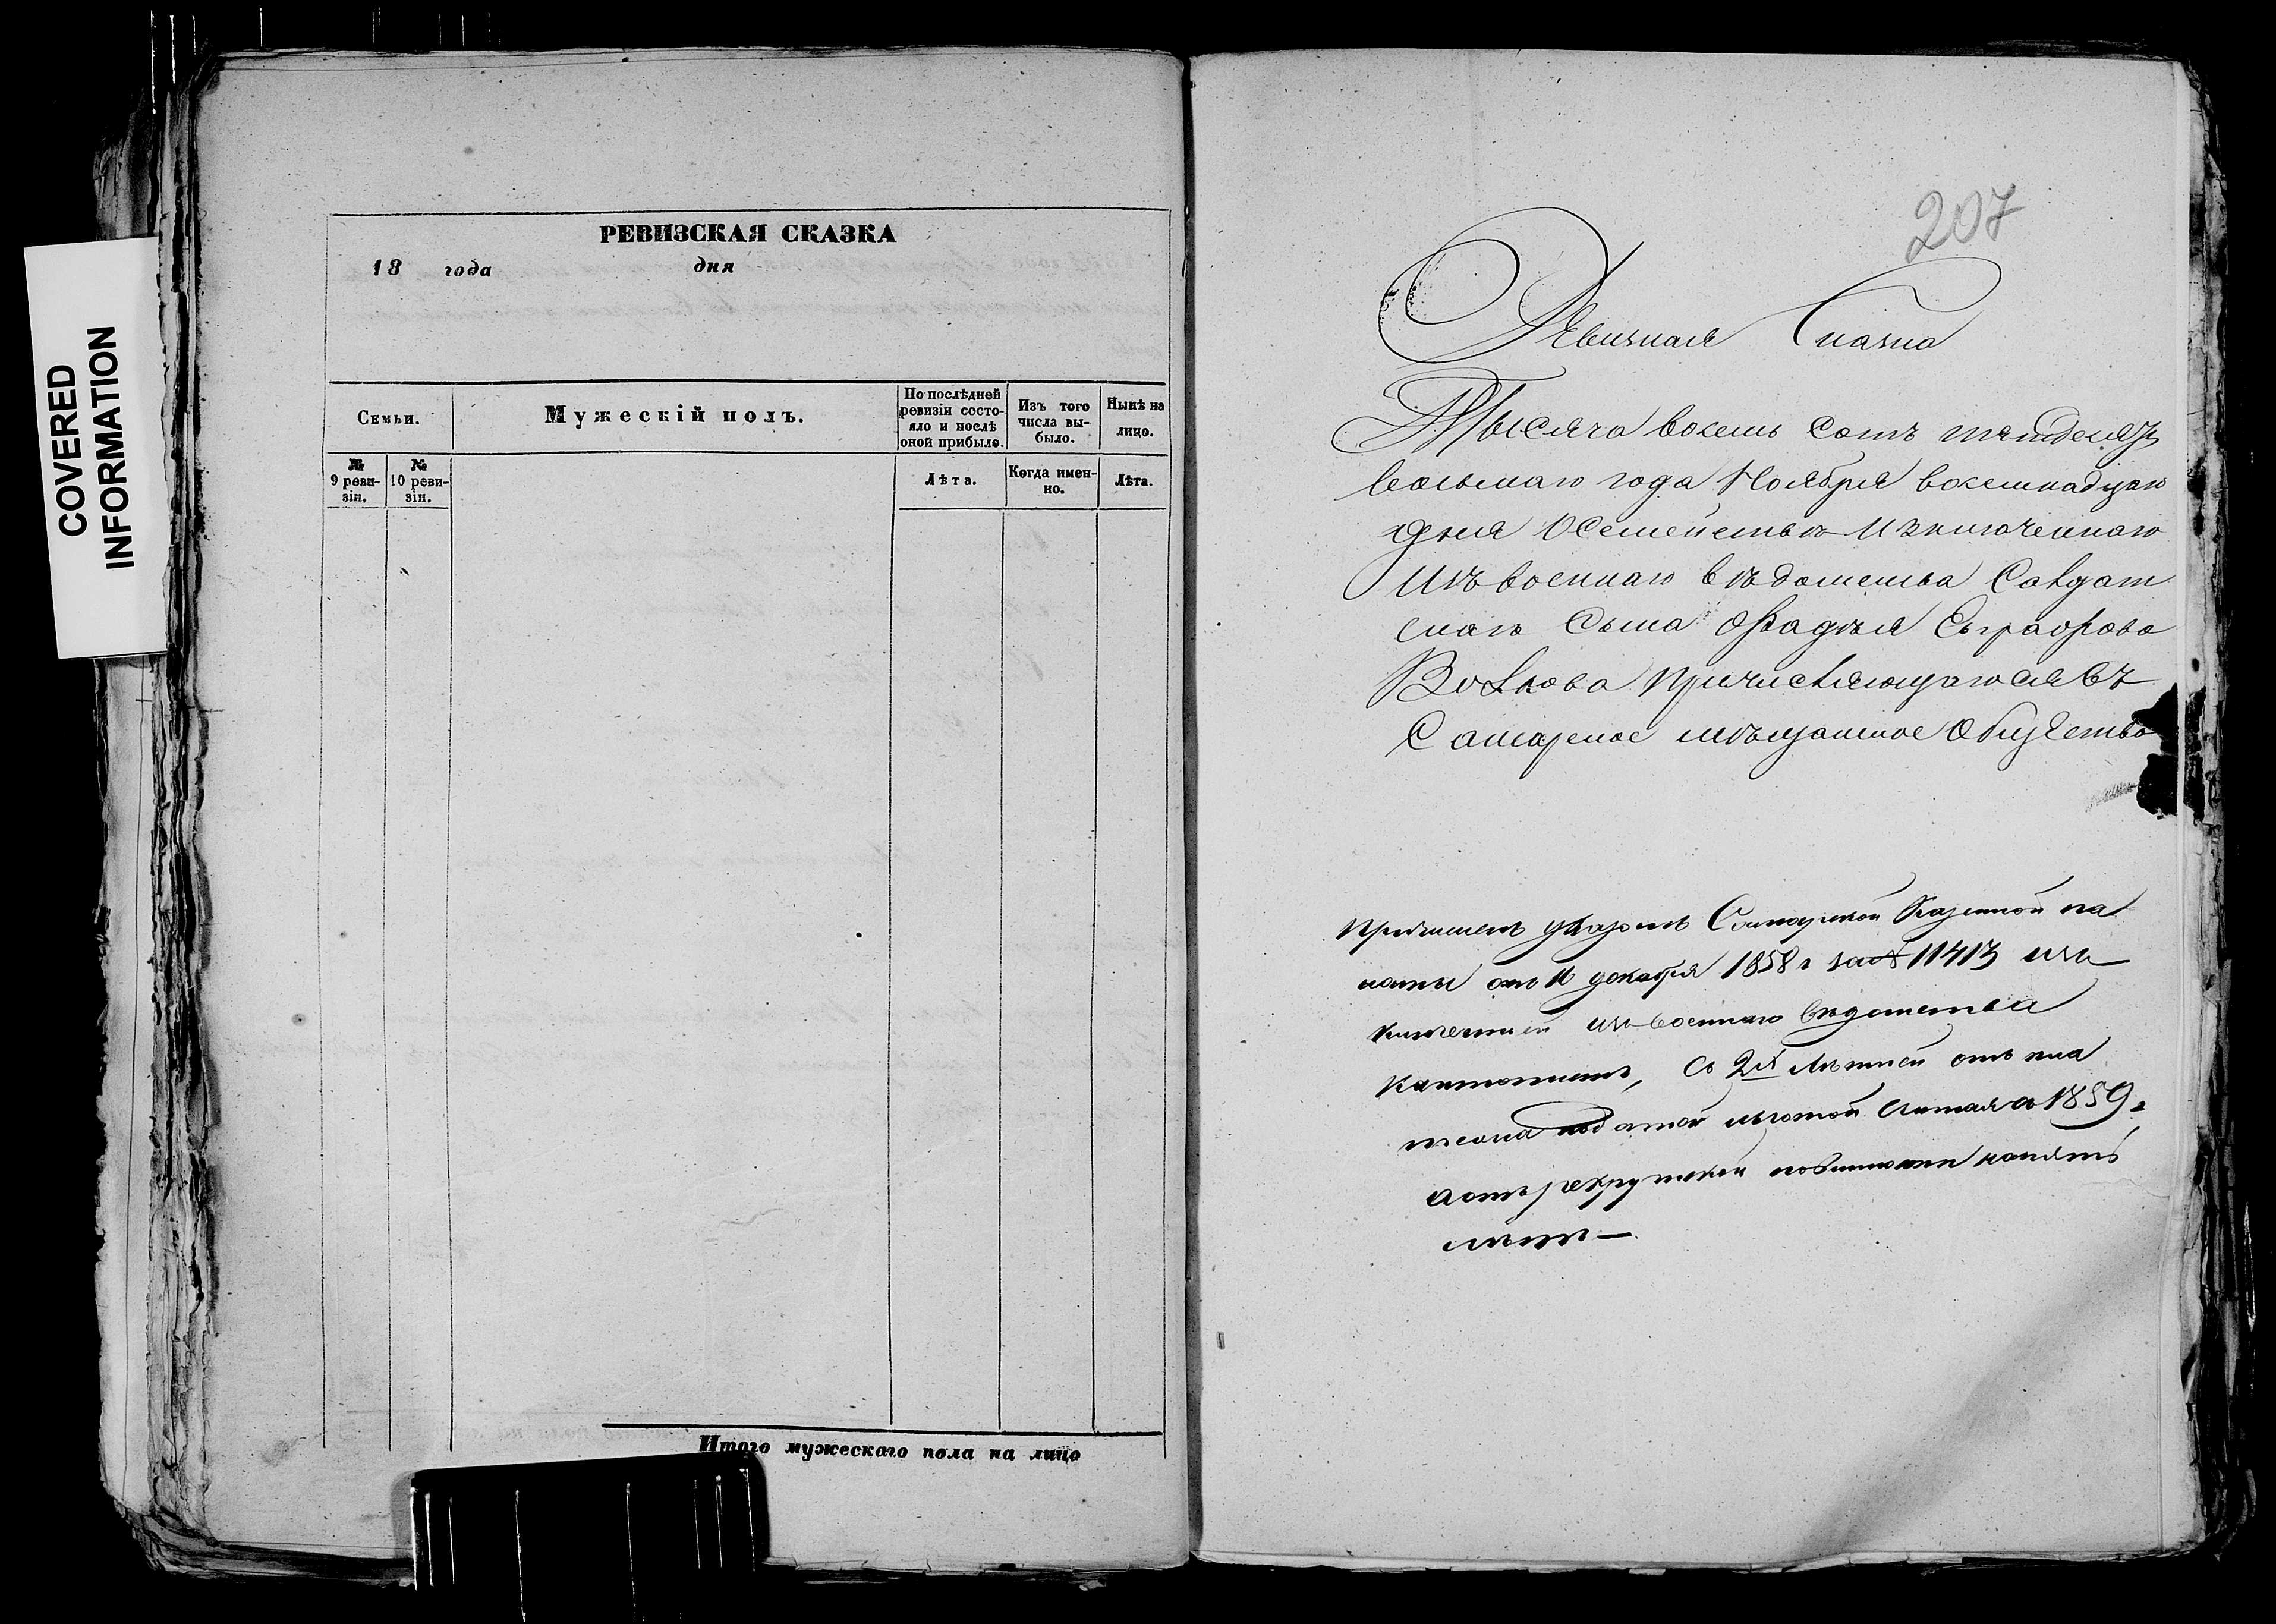 COVERED
INFORMATION
РЕВИЗСКАЯ СКАЗКА
18 года дня
Семьи.
Мужескій полъ.
По послѣдней
ревизіи состо-
яло и послѣ
оной прибыло.
Изъ того
числа вы-
было.
Нынѣ на
лицо.
№
9 реви-
зіи.
№
10 реви-
зіи.
Лѣта.
Когда имен-
но.
Лѣта.
Итого мужескаго пола на лицо
207
Ревизная Сказка
Тысяча восемь сотъ пятдесятъ
восьмаго года Ноября восемнадцаго
дня О семействѣ Изключеннаго
Изъ военнаго вѣдомства Солдат
скаго Сына Фадѣя Евграфова
Волкова причисляющагося въ
Самарское мѣщанское Общество
Причисленъ указомъ Самарской Казенной па
латы отъ 11 декабря 1858 г за № 11413 изъ
ключенный изъ военнаго вѣдомства
кантонистъ, Съ 2х лѣтней отъ пла
тежа податей льготой считая съ 1859 г
а отъ рекрутской повинности
лѣтъ —